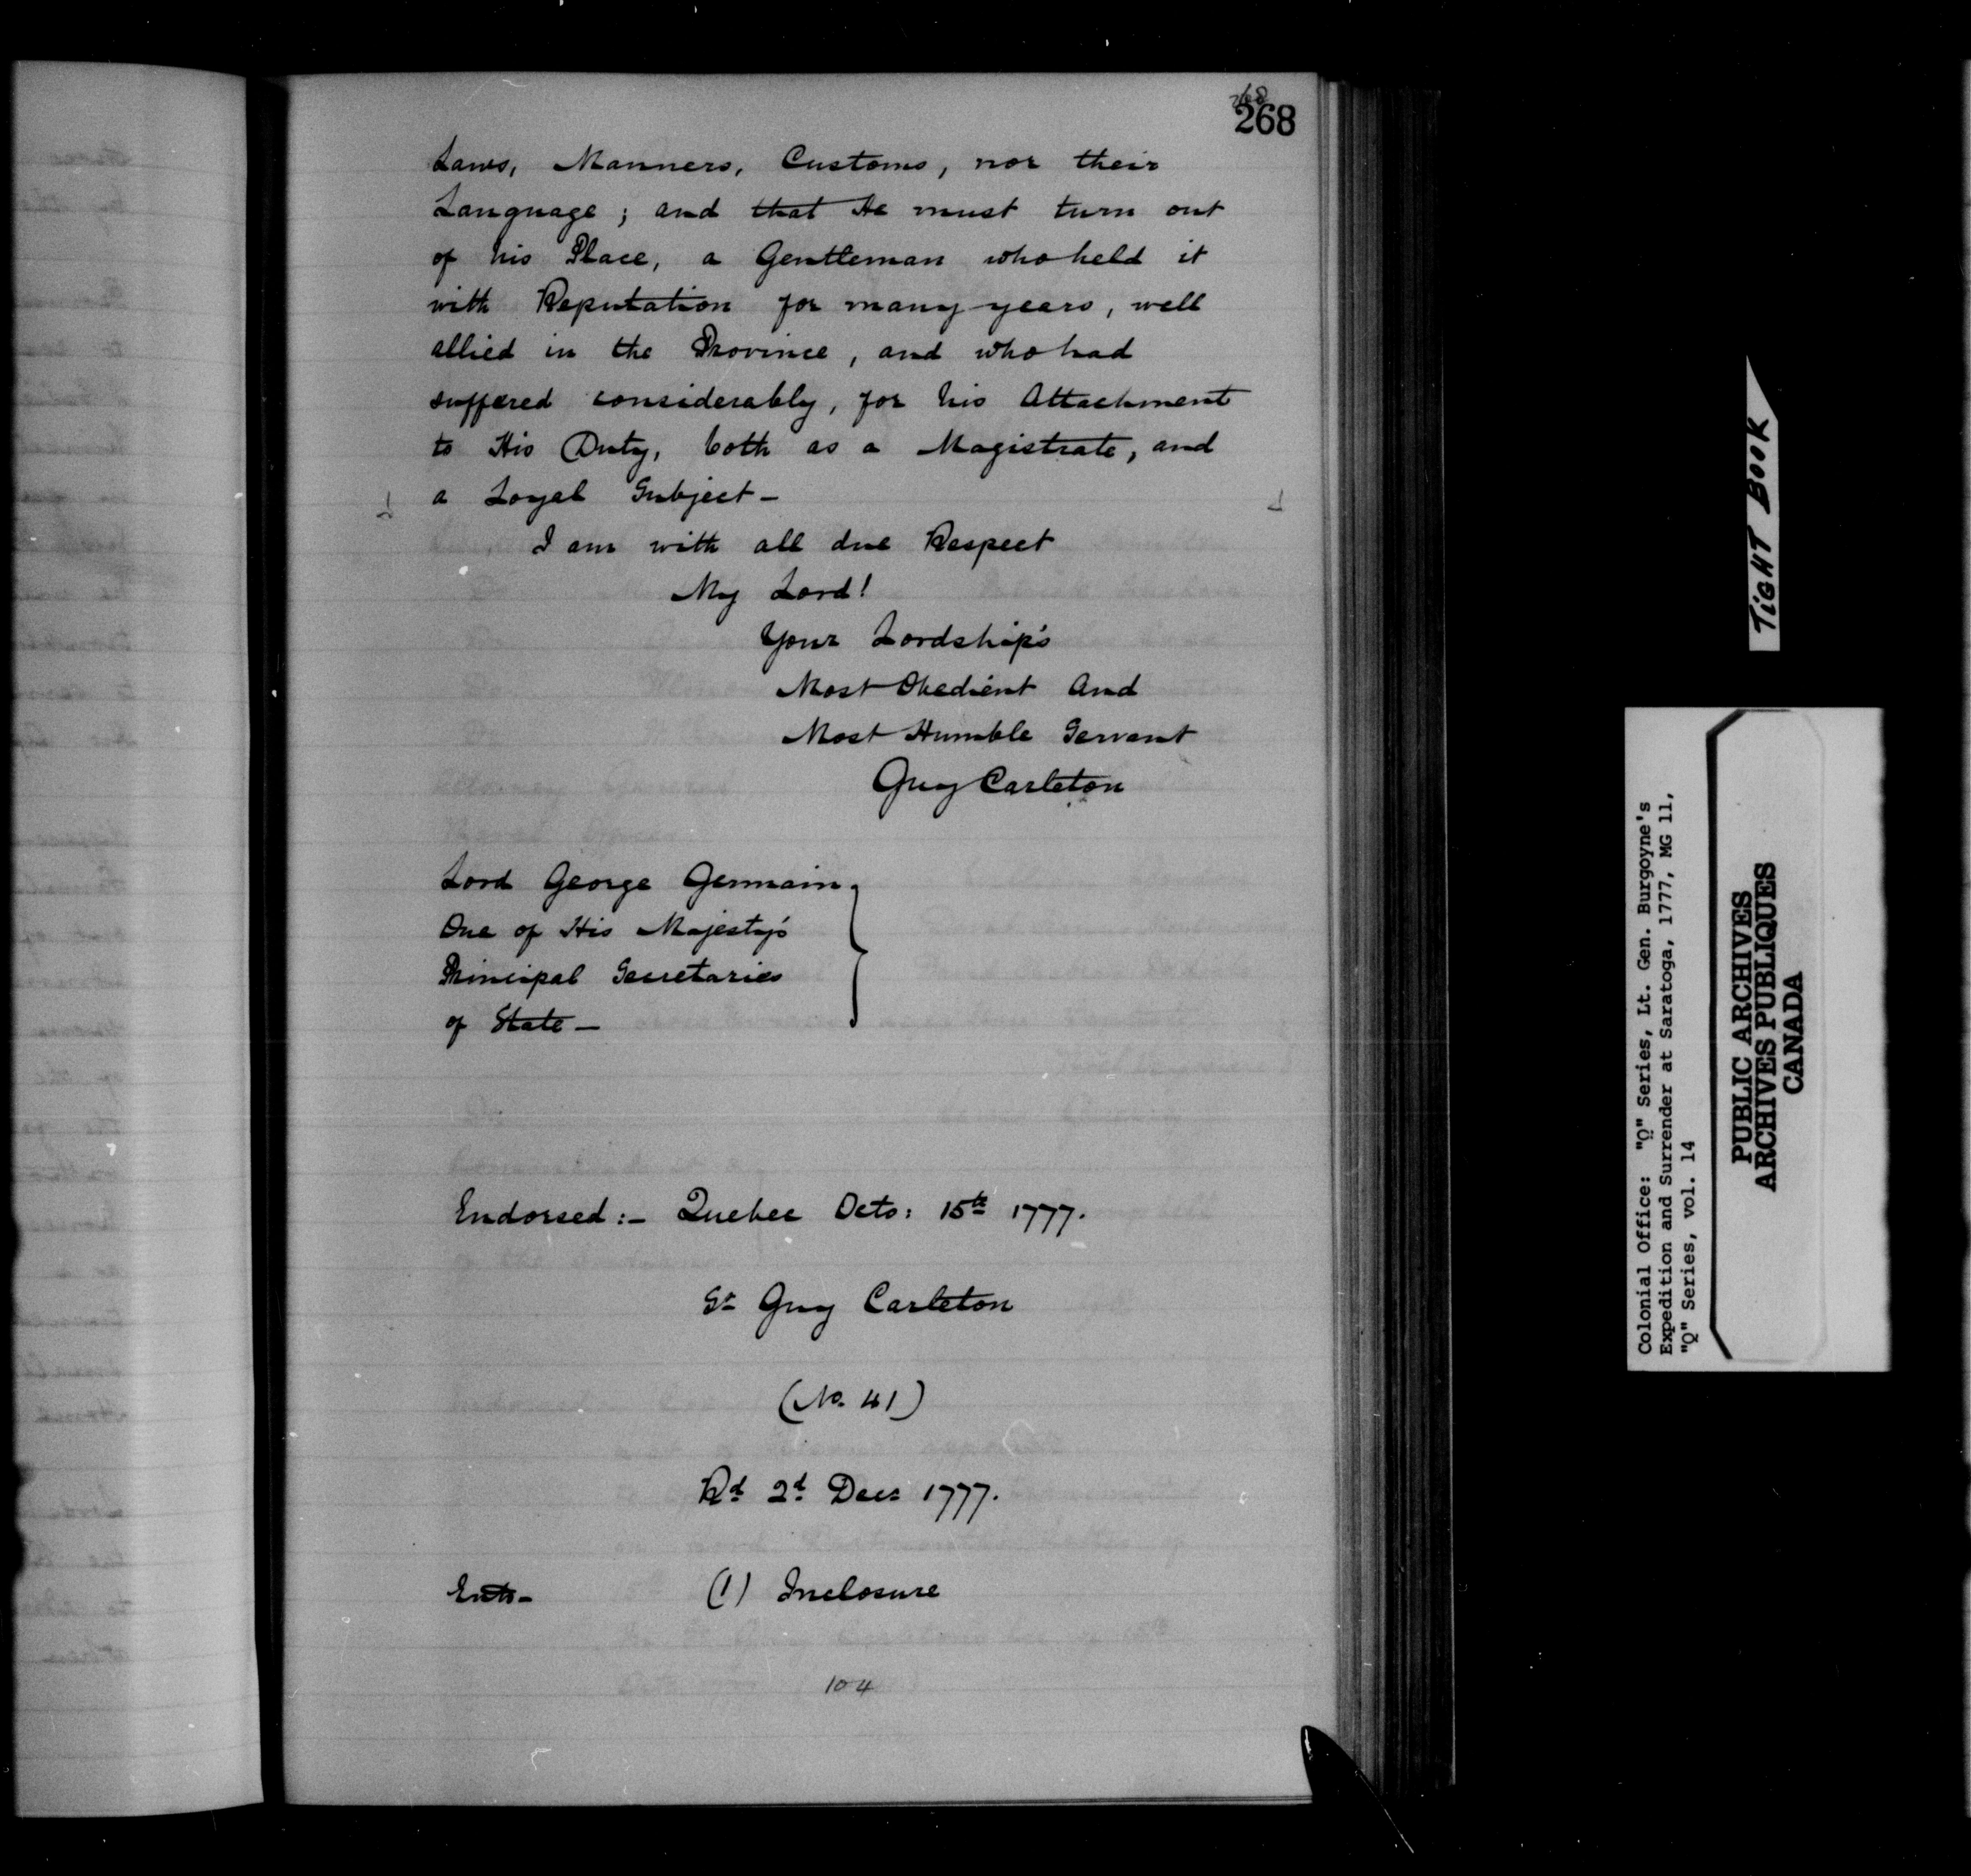 268
268
Laws, Manners, Customs, nor their
Language; and that He must turn out
of his Place, a Gentleman who held it
with Reputation for many years, well
allied in the Province, and who had
suffered considerably, for his Attachment
to His Duty, both as a Magistrate, and
a Loyal Subject—
I am with all due Respect
My Lord!
Your Lordship's
Most Obedient And
Most Humble Servant
Guy Carleton
Lord George Germain
One of His Majesty's
Principal Secretaries
of State—
Endorsed:— Quebec Octo: 15th 1777.
Sr Guy Carleton
(No. 41)
Rd 2d Decr 1777.
(1) Inclosure
104
TIGHT BOOK
Colonial Office: "Q" Series, Lt. Gen. Burgoyne's
Expedition and Surrender at Saratoga, 1777, MG 11,
"Q" Series, vol. 14
PUBLIC ARCHIVES
ARCHIVES PUBLIQUES
CANADA